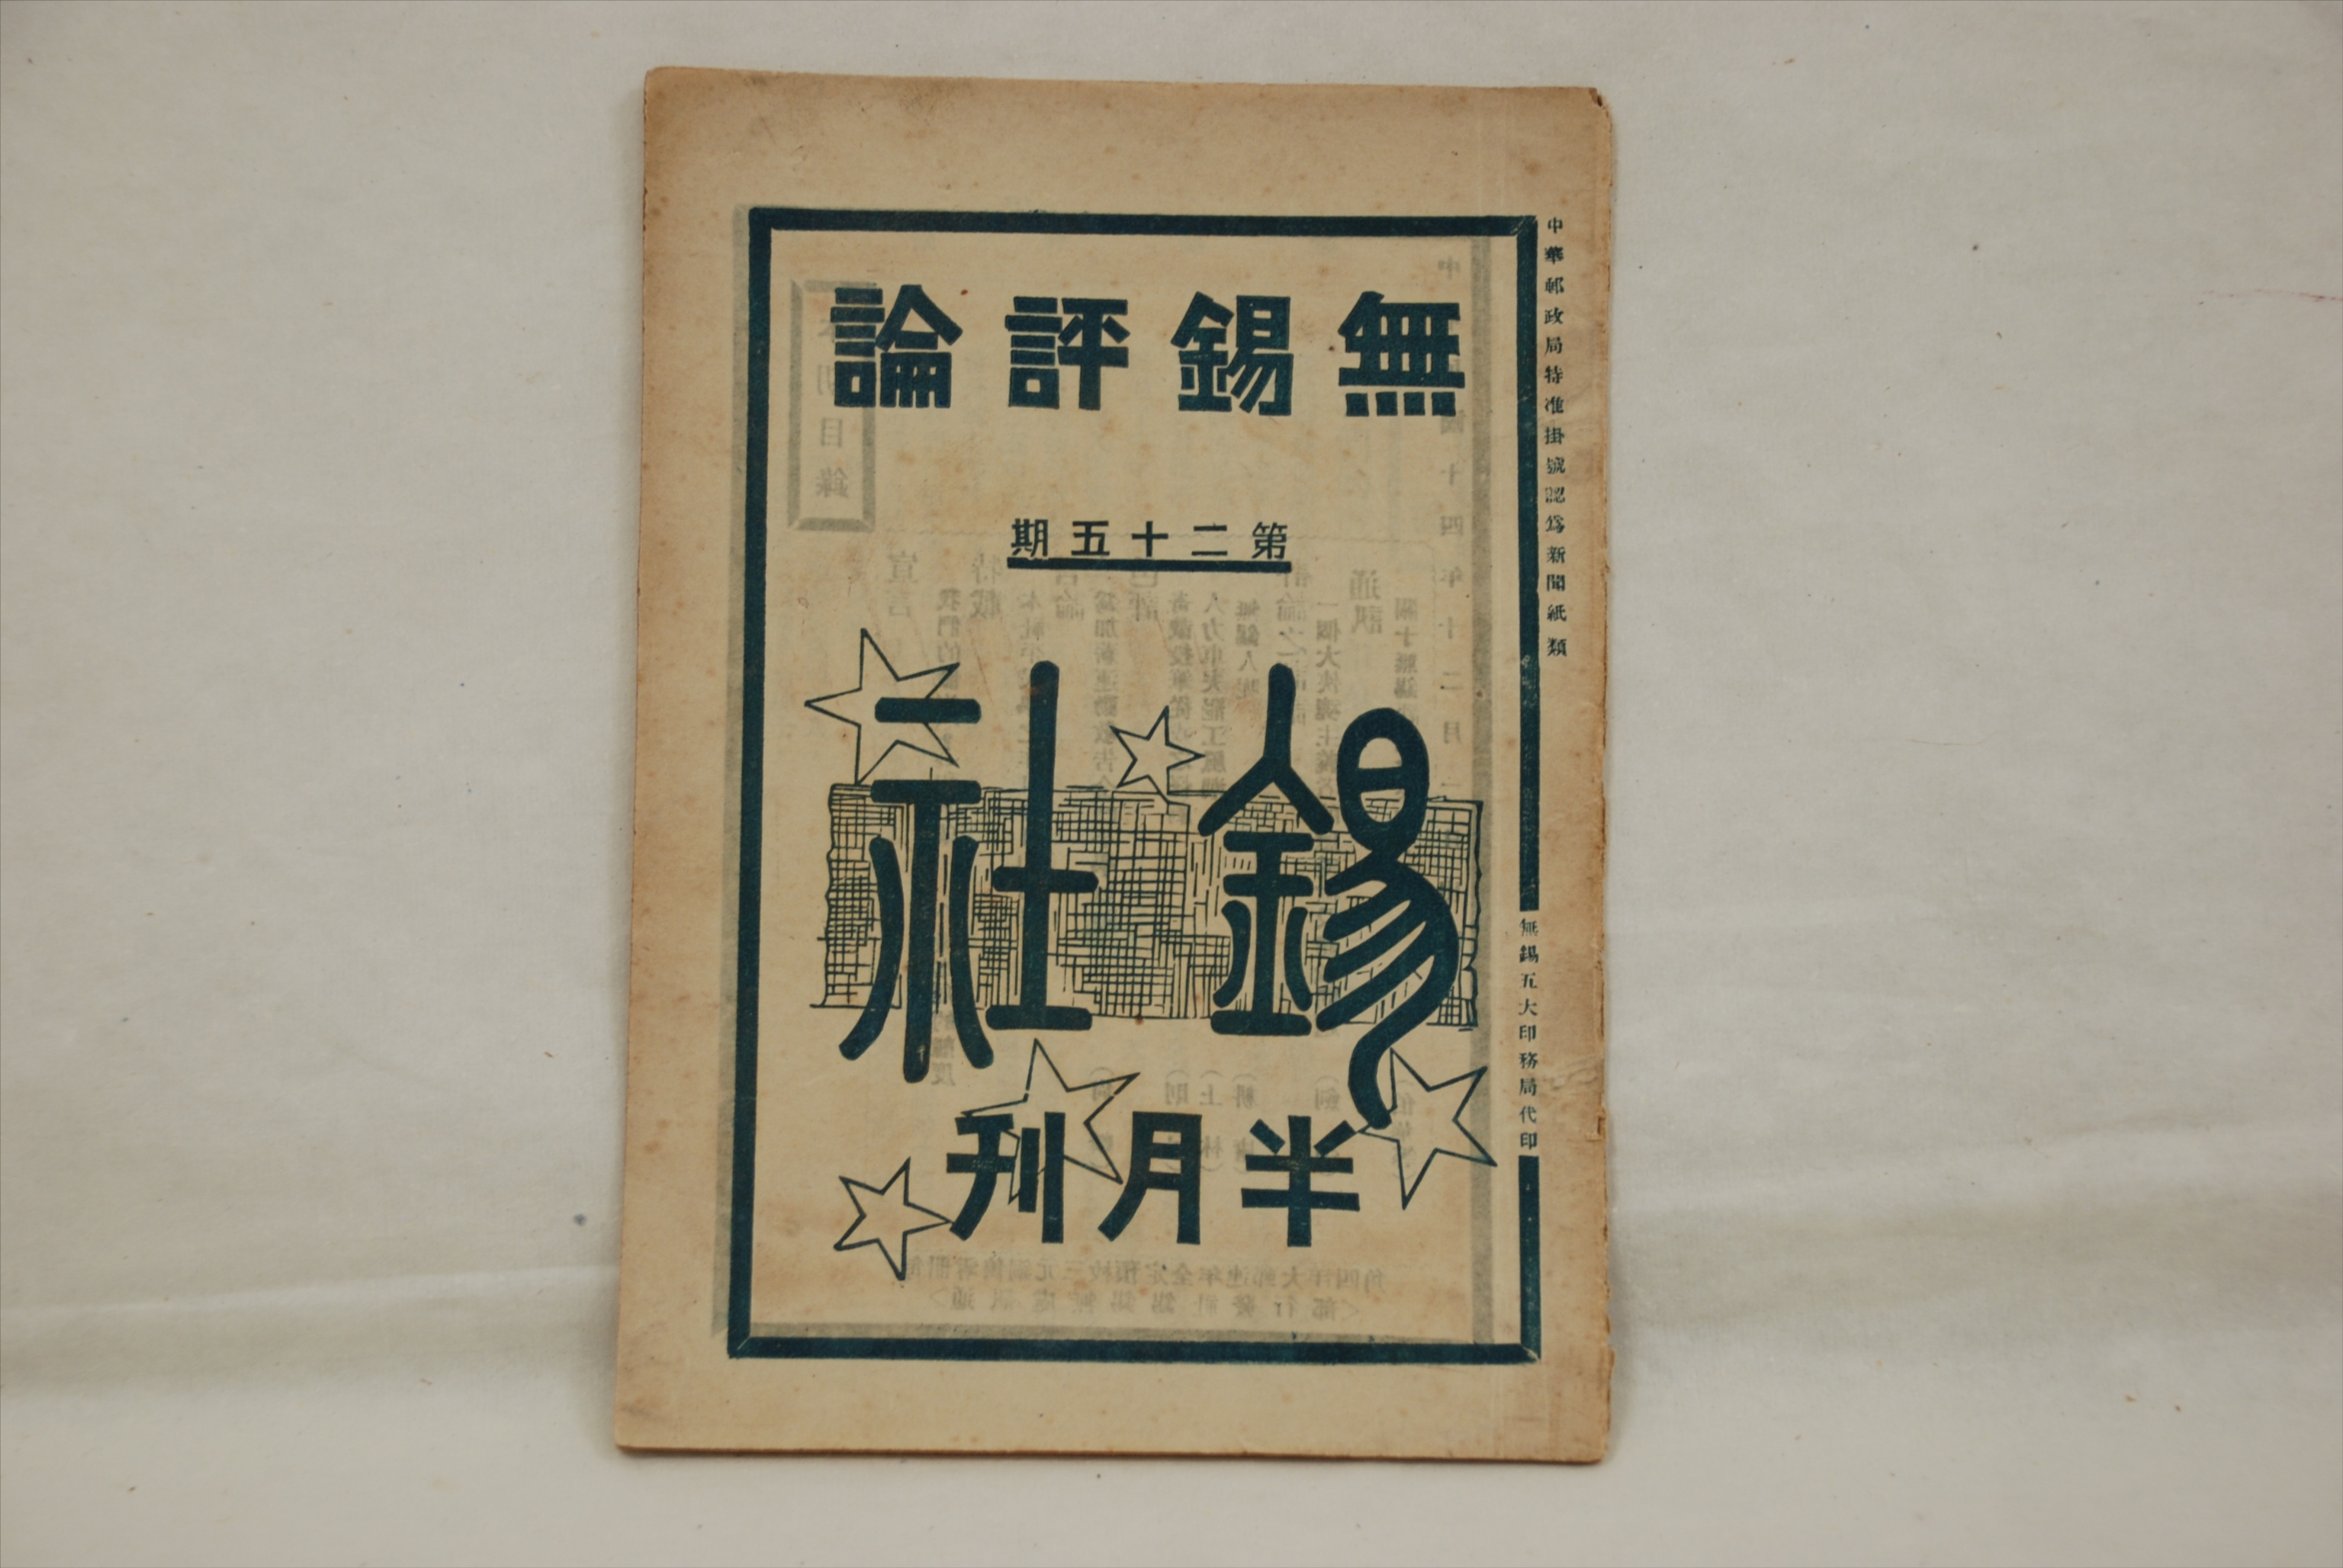 無錫評論
第二十五期
錫社
半月刊
中華郵政局特准掛號認爲新聞紙類
無錫五大印務局代印